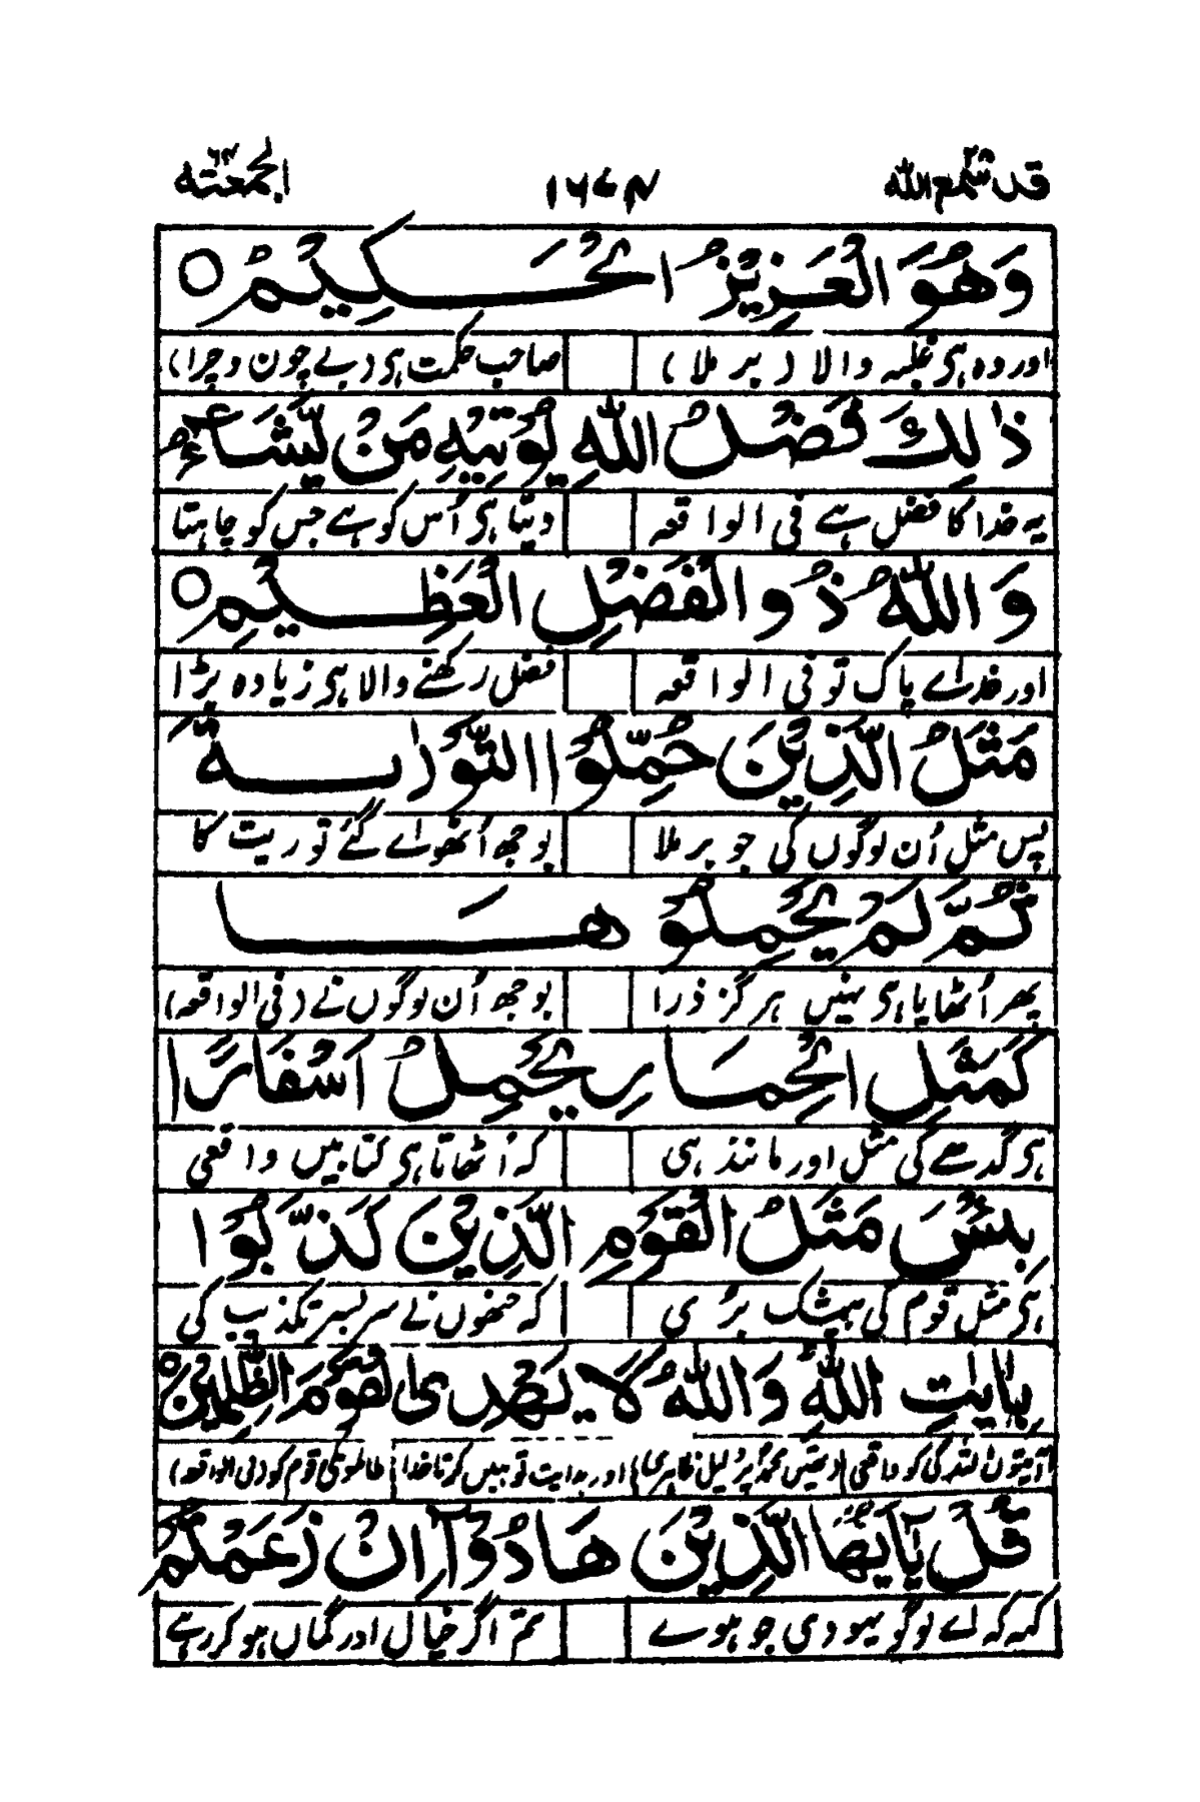 قد سمع الله ۲۸ ۱۶۷۴ الجمعتہ ۶۲
وَهُوَ الْعَزِيْزُ الْحَكِيْمُ ○
اور وہ ہی غلبہ والا (بر ملا) صاحب حکمت ہی (بے چون و چرا)
ذٰلِكَ فَضْلُ اللّٰهِ يُؤْتِيْهِ مَنْ يَّشَآءُ
یہ خدا کا فضل ہے فی الواقعہ دیتا ہی اُس کو ہے جس کو چاہتا
وَاللّٰهُ ذُو الْفَضْلِ الْعَظِيْمِ ○
اور خداے پاک تو فی الواقعہ فضل رکھنے والا ہی زیادہ بڑا
مَثَلُ الَّذِيْنَ حُمِّلُوا التَّوْرٰىةَ
پس مثل اُن لوگوں کی جو بر ملا بوجھ اُٹھواے گئے توریت کا
ثُمَّ لَمْ يَحْمِلُوْهَا
پھر اُٹھایا ہی نہیں ہرگز ذرا بوجھ اُن لوگوں نے (فی الواقعہ)
كَمَثَلِ الْحِمَارِ يَحْمِلُ اَسْفَارًا
ہی گدھے کی مثل اور مانند ہی کہ اُٹھاتا ہی کتابیں واقعی
بِئْسَ مَثَلُ الْقَوْمِ الَّذِيْنَ كَذَّبُوْا
ہی مثل قوم کی بیشک بڑی کہ جنھوں نے سر بسر تکذیب کی
بِاٰيٰتِ اللّٰهِ وَاللّٰهُ لَا يَهْدِى الْقَوْمَ الظّٰلِمِيْنَ ○
آیتوں اللہ کی کو واقعی (دیتیں محمدؐ پر دلیل ظاہری) اور ہدایت تو نہیں کرتا خدا ظالموں کی قوم کو (فی الواقعہ)
قُلْ يٰٓاَيُّهَا الَّذِيْنَ هَادُوْٓا اِنْ زَعَمْتُمْ
کہہ کہ اے لوگو یہودی جو ہوے تم اگر خیال اور گماں ہو کر رہے